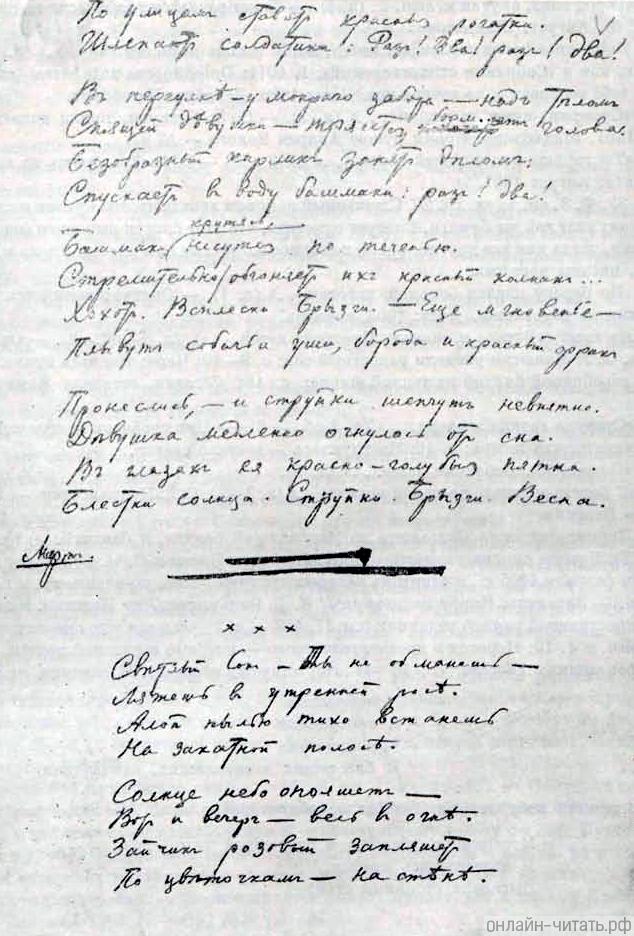 По улицамъ ставятъ красныя рогатки.
Шлепаютъ солдатики: Разъ! Два! разъ! два!
Въ переулкѣ – у мокраго забора – надъ тѣломъ
Спящей дѣвушки – трясется бормочетъ голова.
Безобразный карликъ занятъ дѣломъ:
Спускаетъ в воду башмаки: разъ! два!
Башмаки, крутясь, несутся по теченью.
Стремительно обгоняетъ ихъ красный колпакъ...
Хохотъ. Всплески. Брызги. – Еще мгновенье –
Плывутъ собачьи уши, борода и красный фракъ
Пронеслись, – и струйки шепчутъ невнятно.
Дѣвушка медленно очнулась отъ сна.
Въ глазахъ ея красно-голубыя пятна.
Блестки солнца. Струйки. Брызги. Весна.
Мартъ.
× × ×
Свѣтлый Сонъ – Ты не обманешь –
Ляжешь въ утренней росѣ.
Алой пылью тихо встанешь
На закатной полосѣ.
Солнце небо опояшетъ –
Вотъ и вечеръ – весь в огнѣ.
Зайчикъ розовый запляшетъ
По цвѣточкамъ – на стѣнѣ.
онлайн-читать.рф